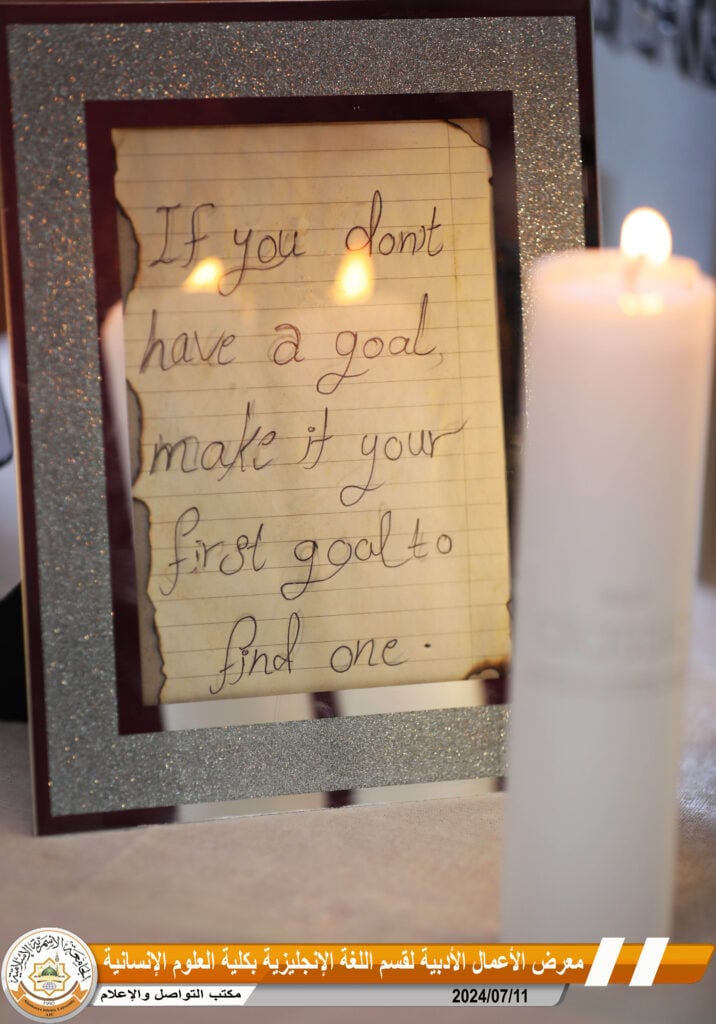 If you don't
have a goal,
make it your
first goal to
find one.
معرض الأعمال الأدبية لقسم اللغة الإنجليزية بكلية العلوم الإنسانية
مكتب التواصل والإعلام
2024/07/11